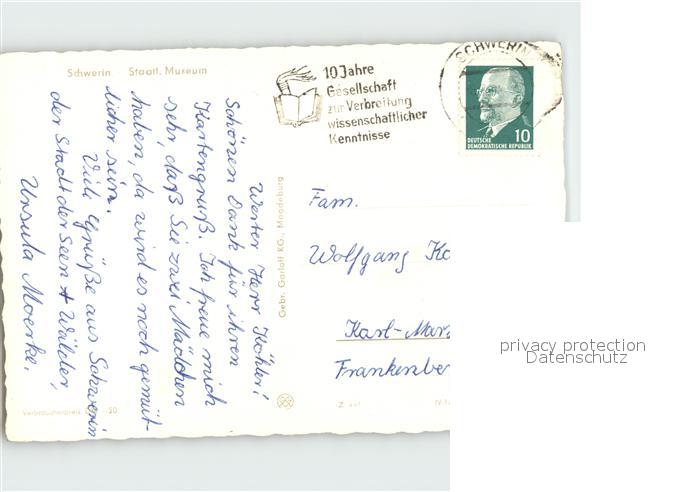 Schwerin Staatl. Museum
10 Jahre
Gesellschaft
zur Verbreitung
wissenschaftlicher
Kenntnisse
SCHWERIN
10
DEUTSCHE
DEMOKRATISCHE REPUBLIK
Werter Herr Köhler!
Schönen Dank für ihren
Kartengruß. Ich freue mich
sehr, daß Sie zwei Mädchen
haben, da wird es noch gemüt-
licher sein.
Viele Grüße aus Schwerin
der Stadt der Seen + Wälder,
Ursula Moerke.
Gebr. Garloff KG., Magdeburg
Fam.
Wolfgang Kö
Karl-Marx
Frankenber
Verbraucherpreis
privacy protection
Datenschutz